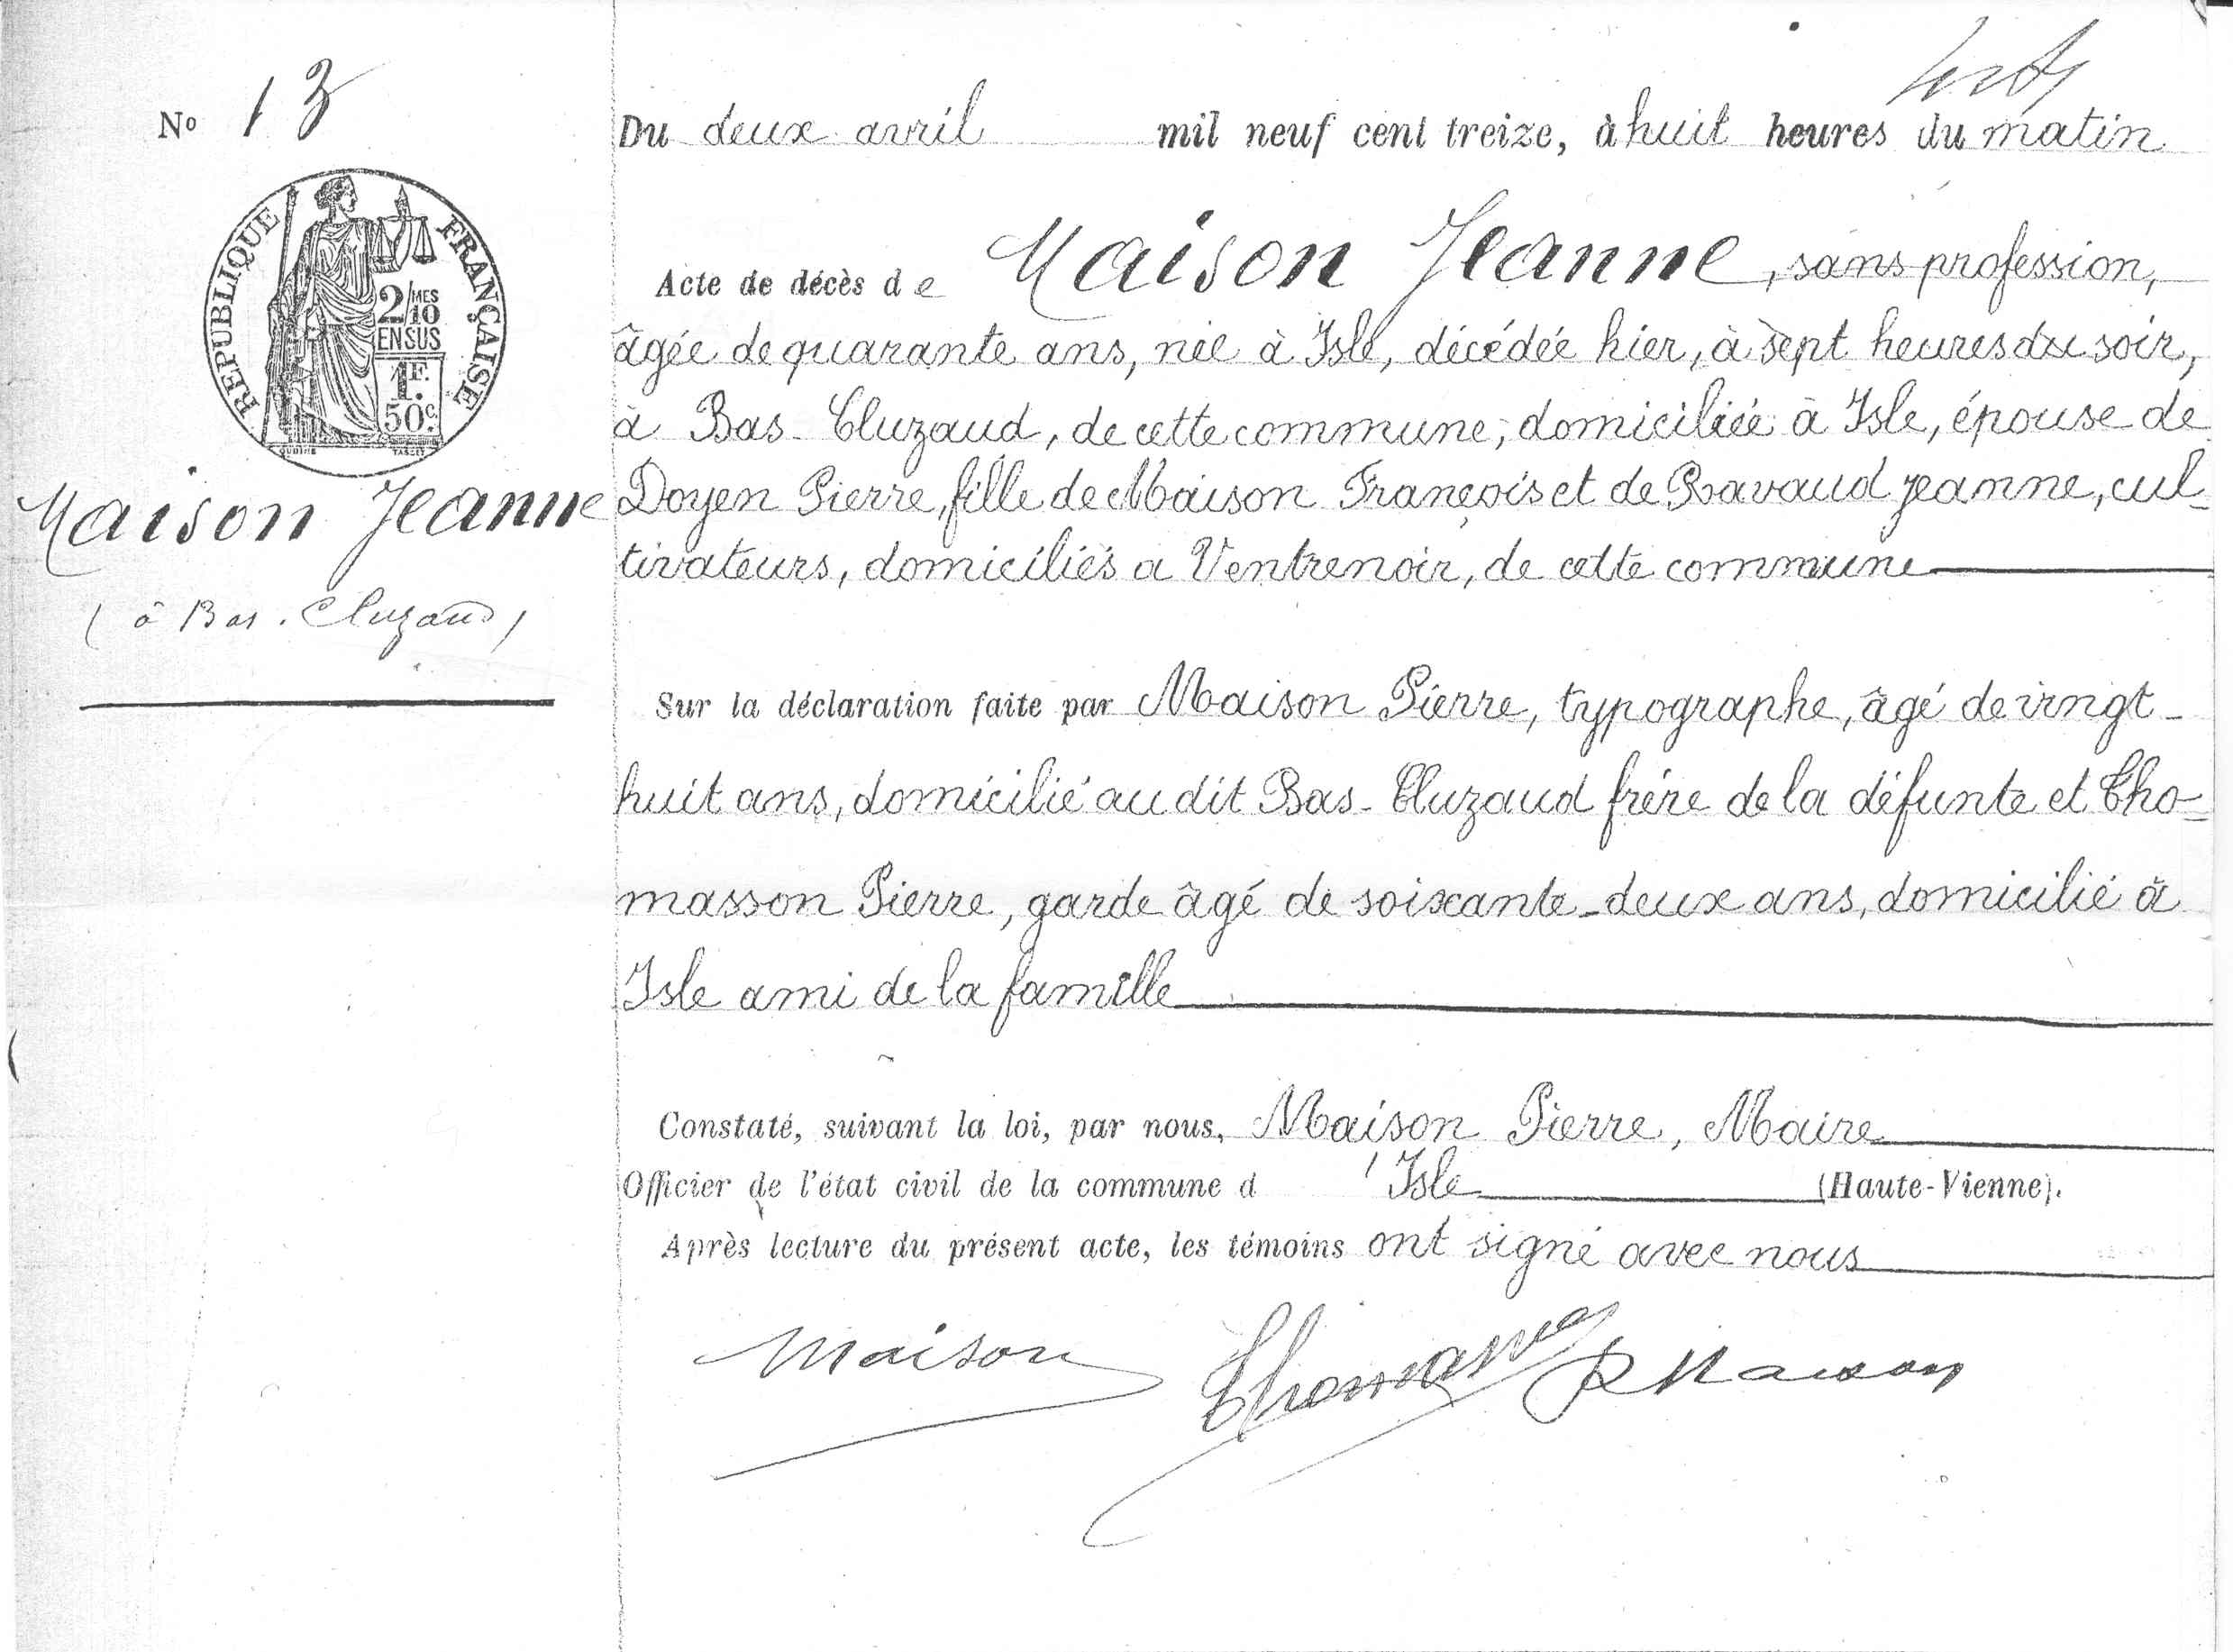 No 13
RÉPUBLIQUE FRANÇAISE
2/MES
10
EN SUS
1F.
50c.
OUDINÉ TASSET
Maison Jeanne
( à Bas. Cluzaud )
Du deux avril mil neuf cent treize, à huit heures du matin
Acte de décès de Maison Jeanne, sans profession,
âgée de quarante ans, née à Isle, décédée hier, à sept heures du soir,
à Bas-Cluzaud, de cette commune, domiciliée à Isle, épouse de
Doyen Pierre, fille de Maison François et de Ravaud Jeanne, cul-
tivateurs, domiciliés a Ventrenoir, de cette commune
Sur la déclaration faite par Maison Pierre, typographe, âgé de vingt-
huit ans, domicilié au dit Bas-Cluzaud frère de la défunte et Tho-
masson Pierre, garde âgé de soixante-deux ans, domicilié à
Isle ami de la famille
Constaté, suivant la loi, par nous, Maison Pierre, Maire
Officier de l'état civil de la commune d'Isle (Haute-Vienne).
Après lecture du présent acte, les témoins ont signé avec nous
Maison P Maison